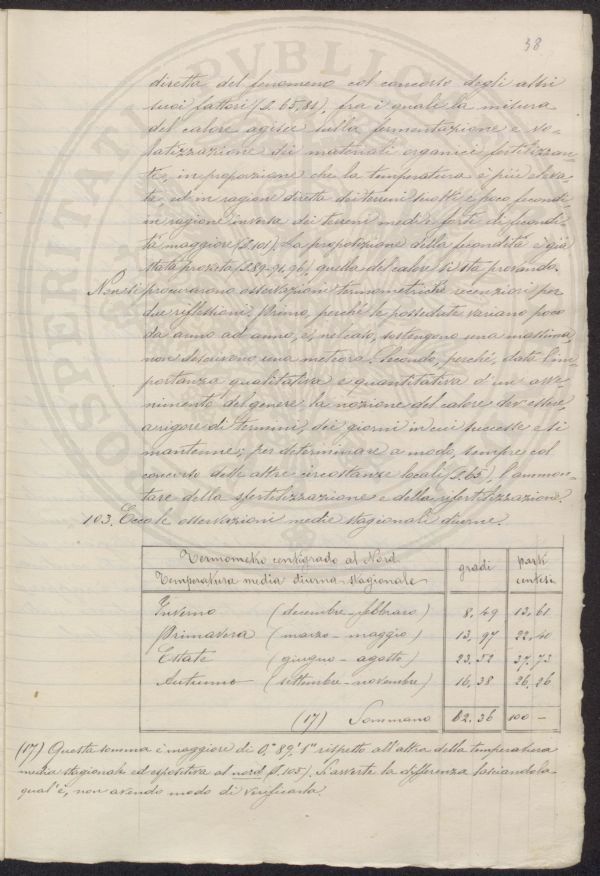 38
diretta del fenomeno col concorso degli altri
suoi fattori (§. 65, 81), fra i quali la misura
del calore agisce sulla fermentazione e vo-
latizzazione dei materiali organici fertilizzan-
te, in proporzione che la temperatura è più eleva-
ta, ed in ragione diretta dei terreni sciolti e poco fecondi,
in ragione inversa dei terreni medi e forti di fecondi-
tà maggiore (§. 101). La proporzione della fecondità è già
stata provata (§. 89-91, 96) quella del calore si sta provando.
Non si procurarono osservazioni termometriche recenziori per
due riflessioni. Primo, perché le possedute variano poco
da anno ad anno, e, nel caso, sostengono una massima,
non descrivono una meteora. Secondo, perché, data l'im-
portanza qualitativa e quantitativa d'un avve-
nimento del genere la nozione del calore dev'essere,
a rigore di termini, dei giorni in cui successe e si
mantenne; per determinare a modo, sempre col
concorso delle altre circostanze locali (§. 65), l'ammon-
tare della sfertilizzazione e della rifertilizzazione.
103. Ecco le osservazioni medie stagionali diurne.
Termometro centigrado al Nord
Temperatura media diurna stagionale
gradi
parti
centesi
Inverno (decembre - febbraro) 8. 49 13, 61
Primavera (marzo - maggio) 13, 97 22. 40
Estate (giugno - agosto) 23. 52 37. 73
Autunno (settembre - novembre) 16, 38 26, 26
(17) Sommano 62. 36 100 -
(17) Questa somma è maggiore di 0.° 89.' 1" rispetto all'altra della temperatura
media stagionale ed espositiva al nord (§. 105). Si avverte la differenza lasciandola
qual'è, non avendo modo di verificarla.
PVBLICAE
PROSPERITATI